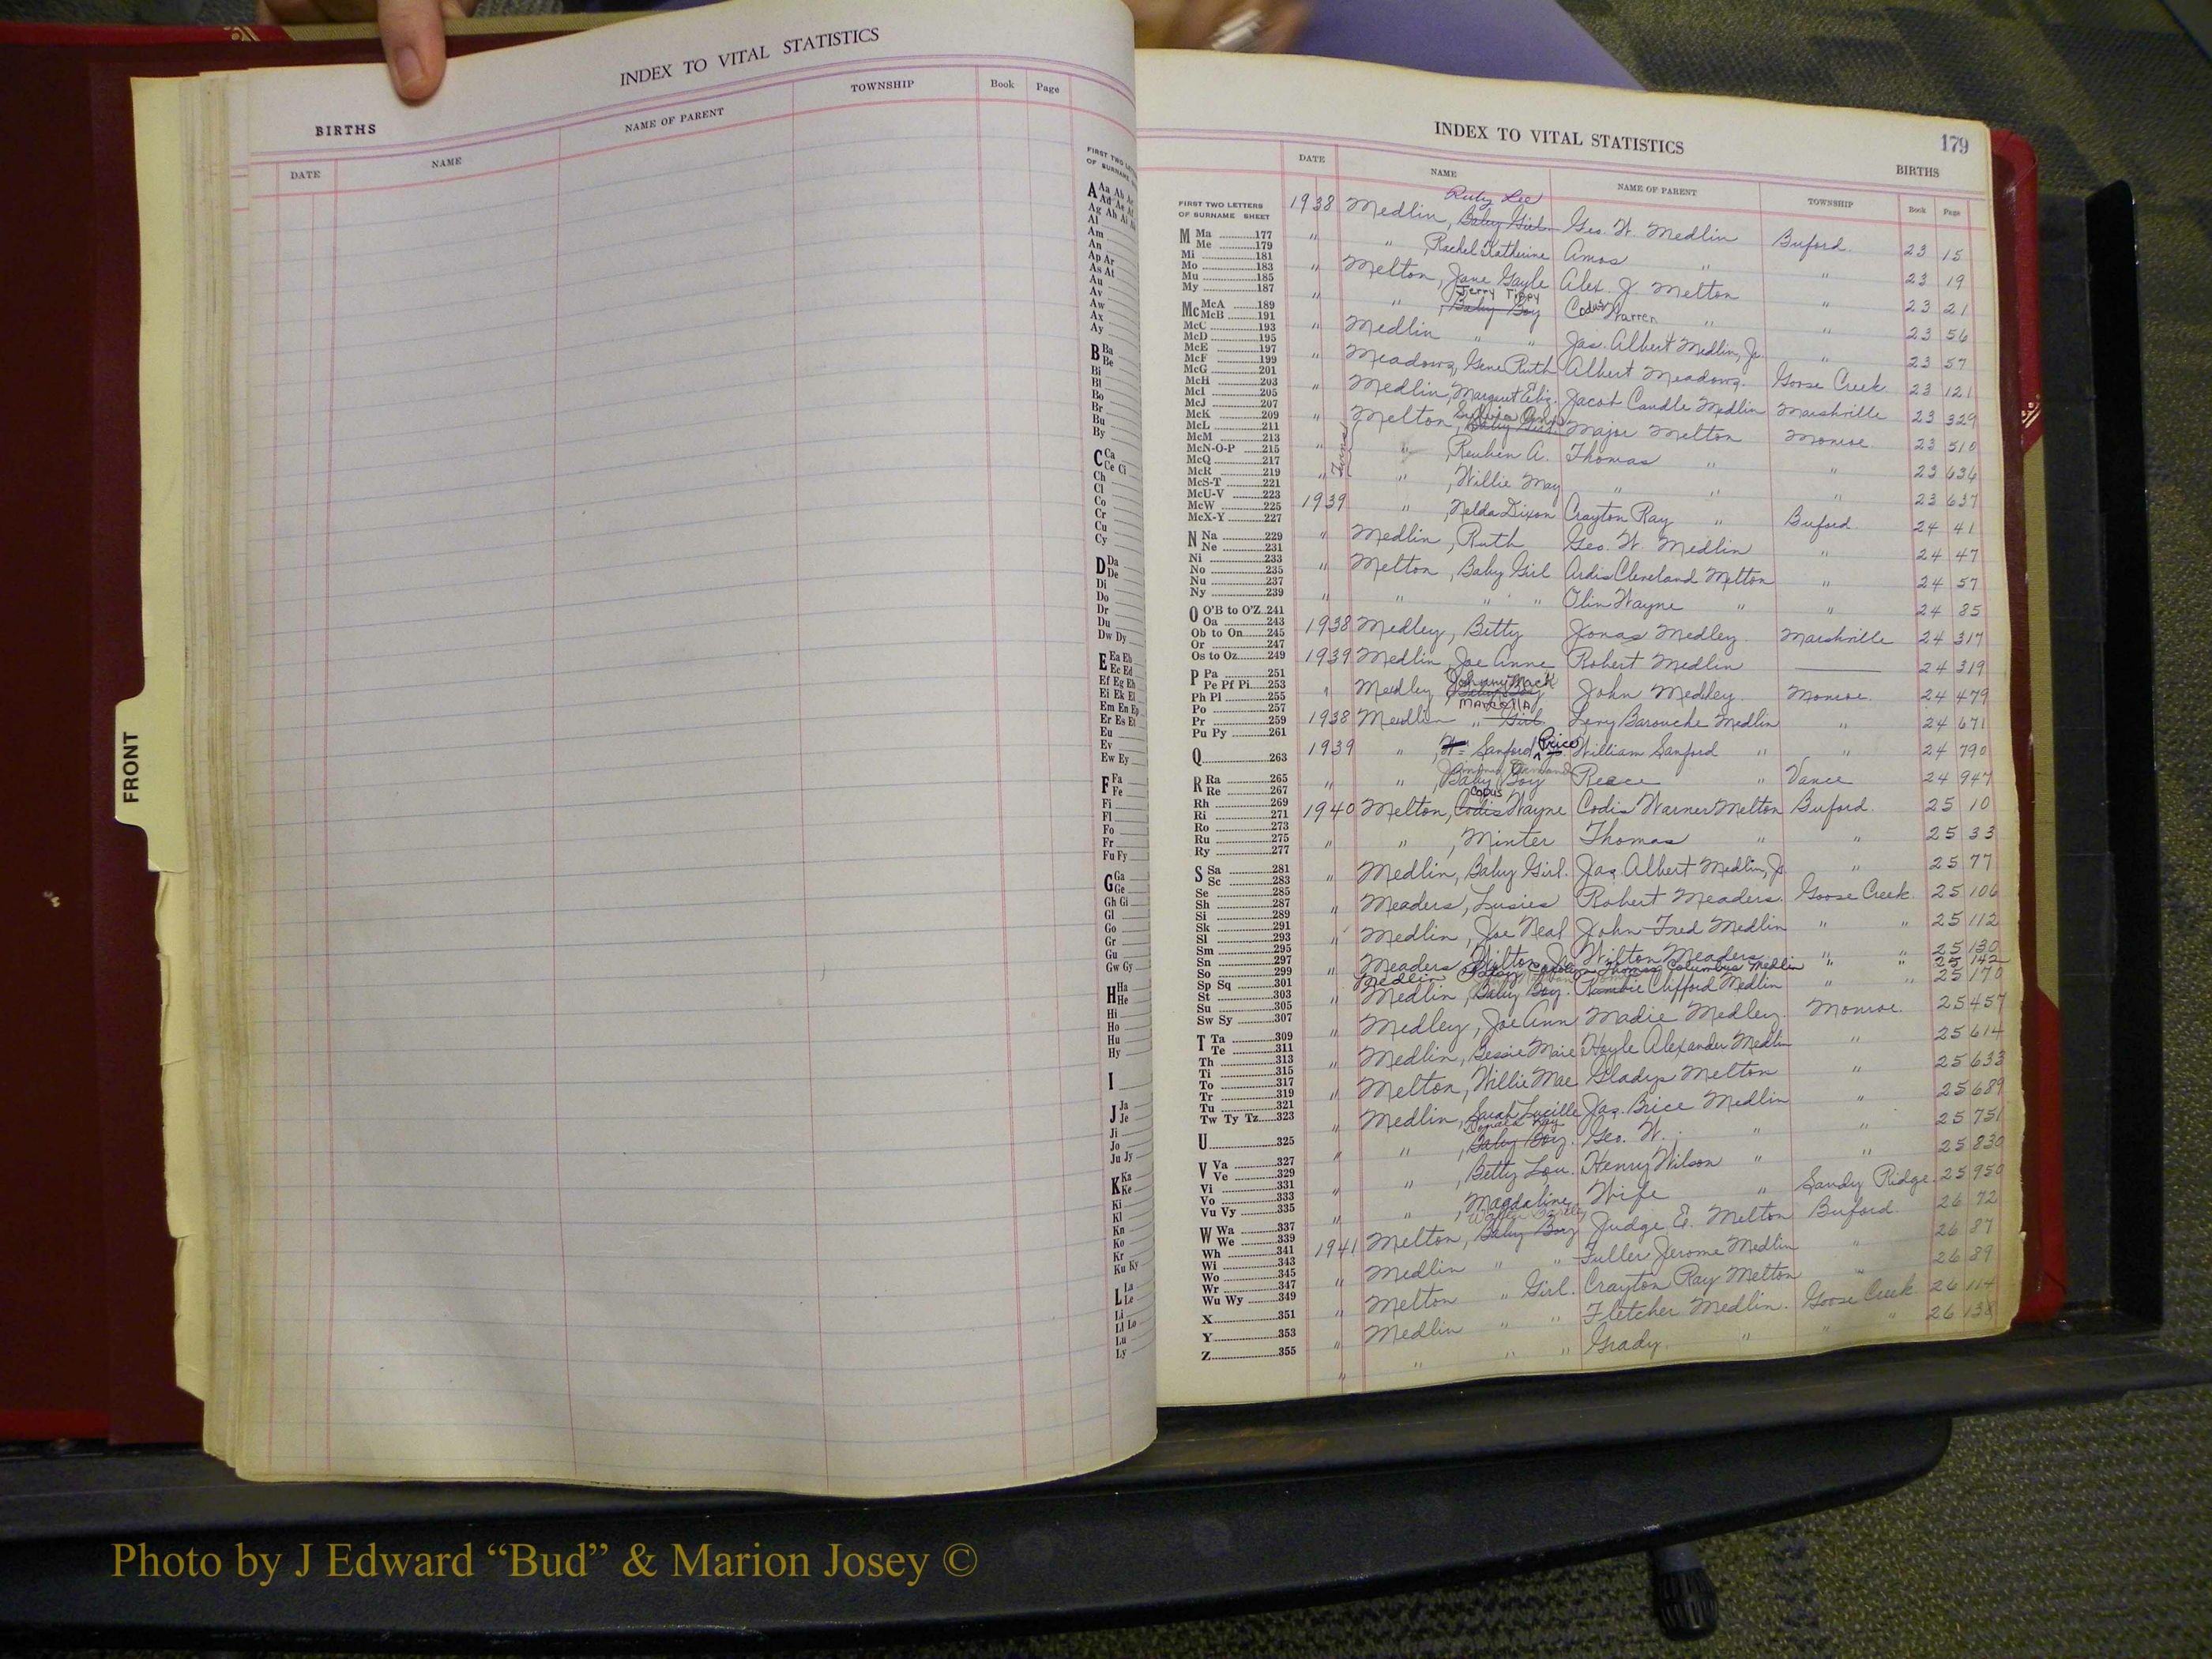 INDEX TO VITAL STATISTICS
BIRTHS
DATE NAME NAME OF PARENT TOWNSHIP Book Page
FRONT
FIRST TWO
OF SURNAME
A Aa Ab Ac
Ad Ae Af
Ag Ah Ai
Al
Am
An
Ap Ar
As At
Au
Av
Aw
Ax
Ay
B Ba
Be
Bi
Bl
Bo
Br
Bu
By
C Ca
Ce Ci
Ch
Cl
Co
Cr
Cu
Cy
D Da
De
Di
Do
Dr
Du
Dw Dy
E Ea Eb
Ec Ed
Ef Eg Eh
Ei Ek El
Em En Ep
Er Es Et
Eu
Ev
Ew Ey
F Fa
Fe
Fi
Fl
Fo
Fr
Fu Fy
G Ga
Ge
Gh Gi
Gl
Go
Gr
Gu
Gw Gy
H Ha
He
Hi
Ho
Hu
Hy
I
J Ja
Je
Ji
Jo
Ju Jy
K Ka
Ke
Ki
Kl
Kn
Ko
Kr
Ku Ky
L La
Le
Li
Ll Lo
Lu
Ly
INDEX TO VITAL STATISTICS
179
BIRTHS
DATE NAME NAME OF PARENT TOWNSHIP Book Page
FIRST TWO LETTERS
OF SURNAME SHEET
M Ma 177
Me 179
Mi 181
Mo 183
Mu 185
My 187
Mc McA 189
McB 191
McC 193
McD 195
McE 197
McF 199
McG 201
McH 203
McI 205
McJ 207
McK 209
McL 211
McM 213
McN-O-P 215
McQ 217
McR 219
McS-T 221
McU-V 223
McW 225
McX-Y 227
N Na 229
Ne 231
Ni 233
No 235
Nu 237
Ny 239
O O'B to O'Z 241
Oa 243
Ob to On 245
Or 247
Os to Oz 249
P Pa 251
Pe Pf Pi 253
Ph Pl 255
Po 257
Pr 259
Pu Py 261
Q 263
R Ra 265
Re 267
Rh 269
Ri 271
Ro 273
Ru 275
Ry 277
S Sa 281
Sc 283
Se 285
Sh 287
Si 289
Sk 291
Sl 293
Sm 295
Sn 297
So 299
Sp Sq 301
St 303
Su 305
Sw Sy 307
T Ta 309
Te 311
Th 313
Ti 315
To 317
Tr 319
Tu 321
Tw Ty Tz 323
U 325
V Va 327
Ve 329
Vi 331
Vo 333
Vu Vy 335
W Wa 337
We 339
Wh 341
Wi 343
Wo 345
Wr 347
Wu Wy 349
X 351
Y 353
Z 355
Ruby Lee
1938 Medlin, Baby Girl Geo. W. Medlin Buford. 23 15
" " Rachel Katherine Amos " " 23 19
" Melton, Jane Gayle Alex. J Melton " 23 21
Jerry Tippy
" " , Baby Boy Warren " " 23 56
" Medlin " " Jas. Albert Medlin, Jr. " 23 57
" Meadows, Gene Ruth Albert Meadows. Goose Creek 23 121
" Medlin, Margaret Eliz. Jacob Caudle Medlin Marshville 23 329
" Melton, Baby Girl Major Melton Monroe 23 510
Twins
" " , Reuben A. Thomas " " 23 636
" " , Willie May " " " 23 637
1939 " , Nelda Dixon Crayton Ray " Buford 24 41
" Medlin, Ruth Geo. W. Medlin " 24 47
" Melton, Baby Girl Ardis Cleveland Melton " 24 57
" " " " Olin Wayne " " 24 85
1938 Medley, Betty Jonas Medley. Marshville 24 317
1939 Medlin, Joe Anne Robert Medlin 24 319
Johnny Mack
" Medley, Baby Boy John Medley. Monroe 24 479
1938 Medlin " Girl Levy Barouche Medlin " 24 671
1939 " , Sanford Price William Sanford " " 24 790
" " , Baby Boy Reece " Vance 24 947
Codus
1940 Melton, Codis Wayne Codis Warner Melton Buford. 25 10
" " , Minter Thomas " " 25 33
" Medlin, Baby Girl. Jas. Albert Medlin, Jr. " 25 77
" Meaders, Lusies Robert Meaders. Goose Creek. 25 106
" Medlin, Joe Neal John Fred Medlin " " 25 112
" Meaders, Wilton Jr. Wilton Meaders " " 25 130
Medlin Carolyn Thomas Columbus Medlin 25 142
" Medlin, Baby Boy. Clifford Medlin " " 25 170
" Medley, Joe Ann Madie Medley. Monroe. 25 457
" Medlin, Bessie Maie Hoyle Alexander Medlin " 25 614
" Melton, Willie Mae Gladys Melton " 25 633
" Medlin, Sarah Lucille Jas. Brice Medlin " 25 689
Donald Ray
" " , Baby Boy. Geo. W. " " 25 751
" " , Betty Lou. Henry Wilson " " 25 830
" " , Magdaline Wife " Sandy Ridge 25 950
1941 Melton, Baby Boy Judge E. Melton Buford. 26 72
" Medlin " " Fuller Jerome Medlin " 26 87
" Melton " Girl. Crayton Ray Melton " 26 89
" Medlin " " Fletcher Medlin. Goose Creek 26 114
" " " " Grady. " " " 26 138
Photo by J Edward “Bud” & Marion Josey ©